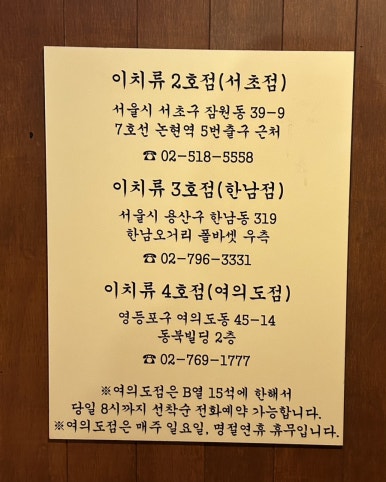 이치류 2호점(서초점)
서울시 서초구 잠원동 39-9
7호선 논현역 5번출구 근처
☎ 02-518-5558
이치류 3호점(한남점)
서울시 용산구 한남동 319
한남오거리 폴바셋 우측
☎ 02-796-3331
이치류 4호점(여의도점)
영등포구 여의도동 45-14
동북빌딩 2층
☎ 02-769-1777
※여의도점은 B열 15석에 한해서
당일 8시까지 선착순 전화예약 가능합니다.
※여의도점은 매주 일요일, 명절연휴 휴무입니다.